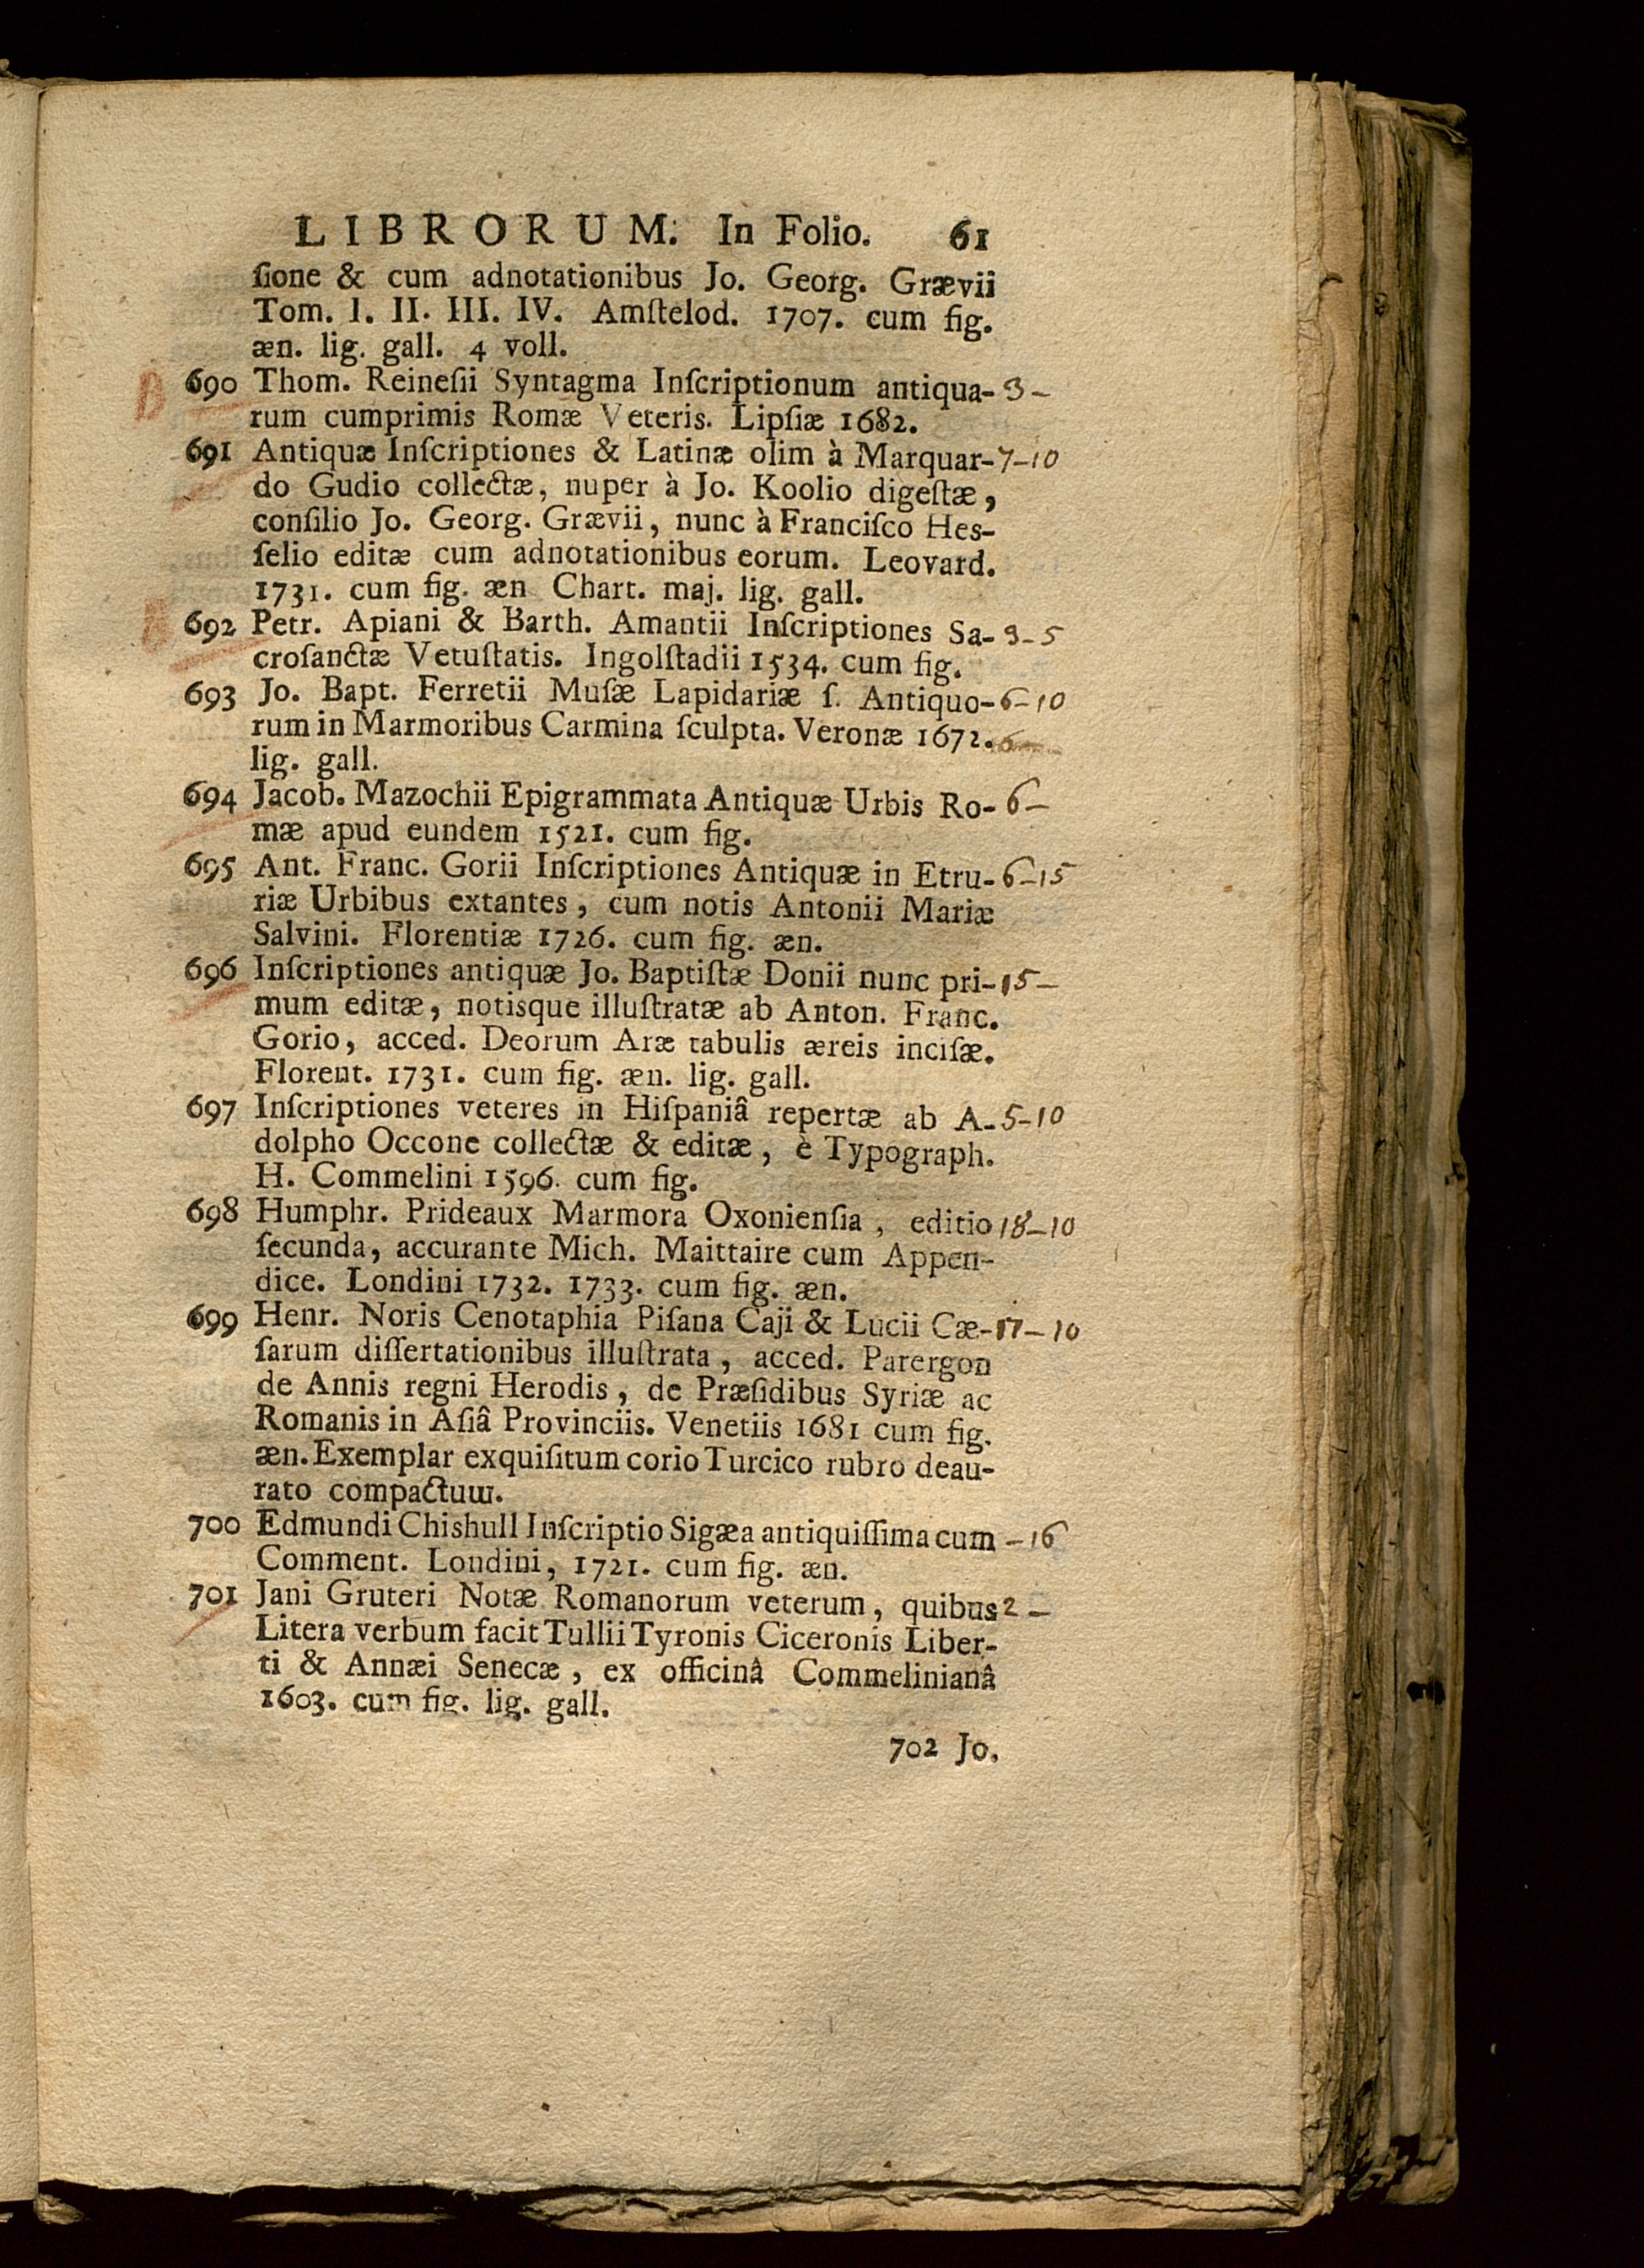 LIBRORUM. In Folio. 61
ſione & cum adnotationibus Jo. Georg. Grævii
Tom. I. II. III. IV. Amſtelod. 1707. cum fig.
æn. lig. gall. 4 voll.
690 Thom. Reineſii Syntagma Inſcriptionum antiqua- 3 -
rum cumprimis Romæ Veteris. Lipſiæ 1682.
691 Antiquæ Inſcriptiones & Latinæ olim à Marquar- 7-10
do Gudio collectæ, nuper à Jo. Koolio digeſtæ,
conſilio Jo. Georg. Grævii, nunc à Franciſco Heſ-
ſelio editæ cum adnotationibus eorum. Leovard.
1731. cum fig. æn Chart. maj. lig. gall.
692 Petr. Apiani & Barth. Amantii Inſcriptiones Sa- 9-5
croſanctæ Vetuſtatis. Ingolſtadii 1534. cum fig.
693 Jo. Bapt. Ferretii Muſæ Lapidariæ ſ. Antiquo- 6-10
rum in Marmoribus Carmina ſculpta. Veronæ 1672.
lig. gall.
694 Jacob. Mazochii Epigrammata Antiquæ Urbis Ro- 6-
mæ apud eundem 1521. cum fig.
695 Ant. Franc. Gorii Inſcriptiones Antiquæ in Etru- 6-15
riæ Urbibus extantes, cum notis Antonii Mariæ
Salvini. Florentiæ 1726. cum fig. æn.
696 Inſcriptiones antiquæ Jo. Baptiſtæ Donii nunc pri- 15-
mum editæ, notisque illuſtratæ ab Anton. Franc.
Gorio, acced. Deorum Aræ tabulis æreis inciſæ.
Florent. 1731. cum fig. æn. lig. gall.
697 Inſcriptiones veteres in Hiſpaniâ repertæ ab A- 5-10
dolpho Occone collectæ & editæ, è Typograph.
H. Commelini 1596. cum fig.
698 Humphr. Prideaux Marmora Oxonienſia, editio 18-10
ſecunda, accurante Mich. Maittaire cum Appen-
dice. Londini 1732. 1733. cum fig. æn.
699 Henr. Noris Cenotaphia Piſana Caji & Lucii Cæ- 17-10
ſarum diſſertationibus illuſtrata, acced. Parergon
de Annis regni Herodis, de Præſidibus Syriæ ac
Romanis in Aſiâ Provinciis. Venetiis 1681 cum fig.
æn. Exemplar exquiſitum corio Turcico rubro deau-
rato compactum.
700 Edmundi Chishull Inſcriptio Sigæa antiquiſſima cum -16
Comment. Londini, 1721. cum fig. æn.
701 Jani Gruteri Notæ Romanorum veterum, quibus 2 -
Litera verbum facit Tullii Tyronis Ciceronis Liber-
ti & Annæi Senecæ, ex officinâ Commelinianâ
1603. cum fig. lig. gall.
702 Jo.